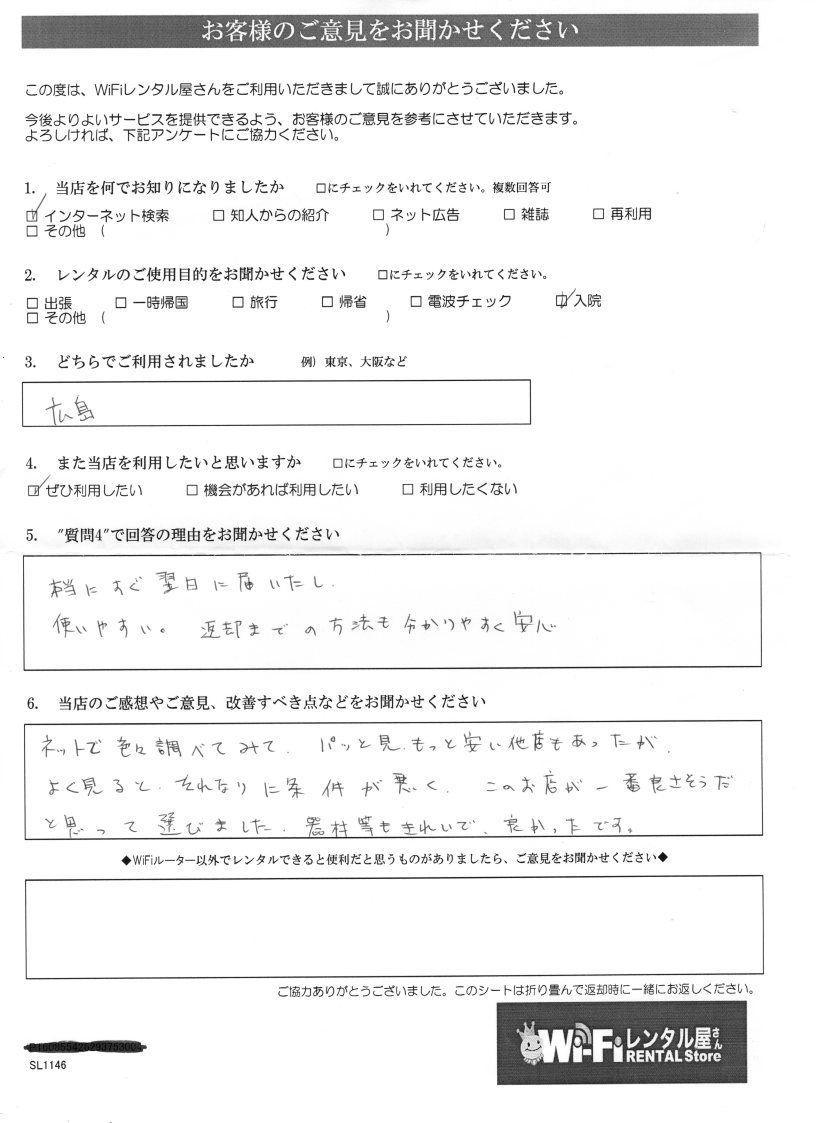 お客様のご意見をお聞かせください
この度は、WiFiレンタル屋さんをご利用いただきまして誠にありがとうございました。
今後よりよいサービスを提供できるよう、お客様のご意見を参考にさせていただきます。
よろしければ、下記アンケートにご協力ください。
1. 当店を何でお知りになりましたか □にチェックをいれてください。複数回答可
☑ インターネット検索 □ 知人からの紹介 □ ネット広告 □ 雑誌 □ 再利用
□ その他 ( )
2. レンタルのご使用目的をお聞かせください □にチェックをいれてください。
□ 出張 □ 一時帰国 □ 旅行 □ 帰省 □ 電波チェック ☑ 入院
□ その他 ( )
3. どちらでご利用されましたか 例）東京、大阪など
広島
4. また当店を利用したいと思いますか □にチェックをいれてください。
☑ ぜひ利用したい □ 機会があれば利用したい □ 利用したくない
5. "質問4"で回答の理由をお聞かせください
本当にすぐ翌日に届いたし、
使いやすい。返却までの方法も分かりやすく安心
6. 当店のご感想やご意見、改善すべき点などをお聞かせください
ネットで色々調べてみて、パッと見、もっと安い他店もあったが、
よく見ると、それなりに条件が悪く、このお店が一番良さそうだ
と思って選びました。器材等もきれいで、良かったです。
◆WiFiルーター以外でレンタルできると便利だと思うものがありましたら、ご意見をお聞かせください◆
ご協力ありがとうございました。このシートは折り畳んで返却時に一緒にお返しください。
Wi-Fiレンタル屋さん
RENTAL Store
SL1146